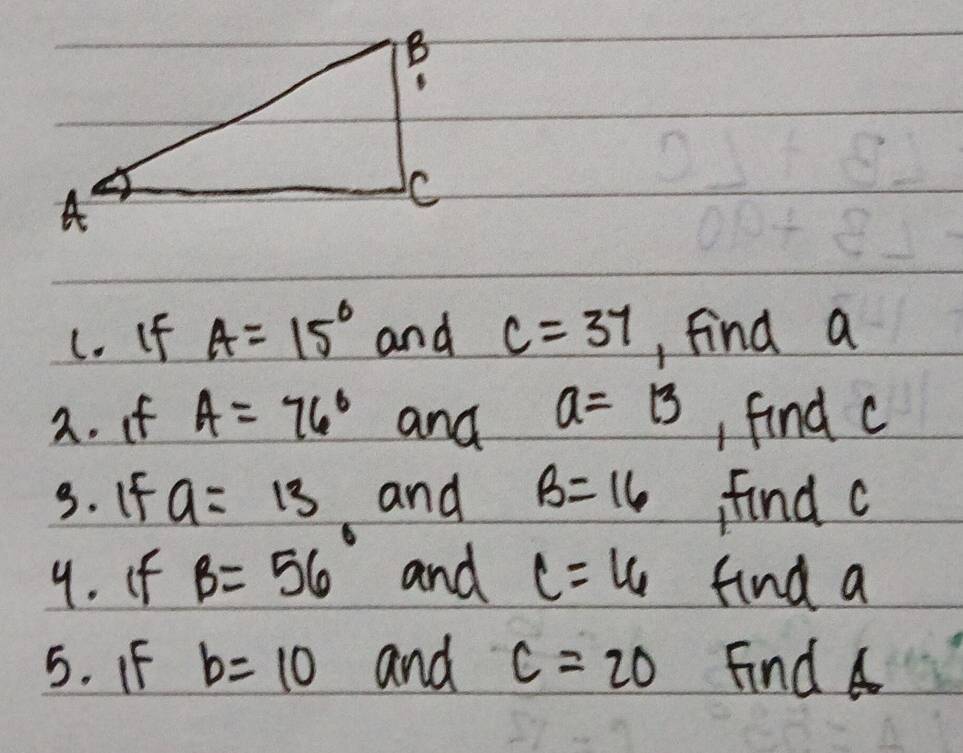 B
A
C
1. If A = 15° and C = 37, Find a
2. if A = 76° and a = 13, find c
3. If a = 13 and B = 16, find c
4. if B = 56° and c = 16 find a
5. If b = 10 and c = 20 Find A
∠B + ∠C
∠B + 90